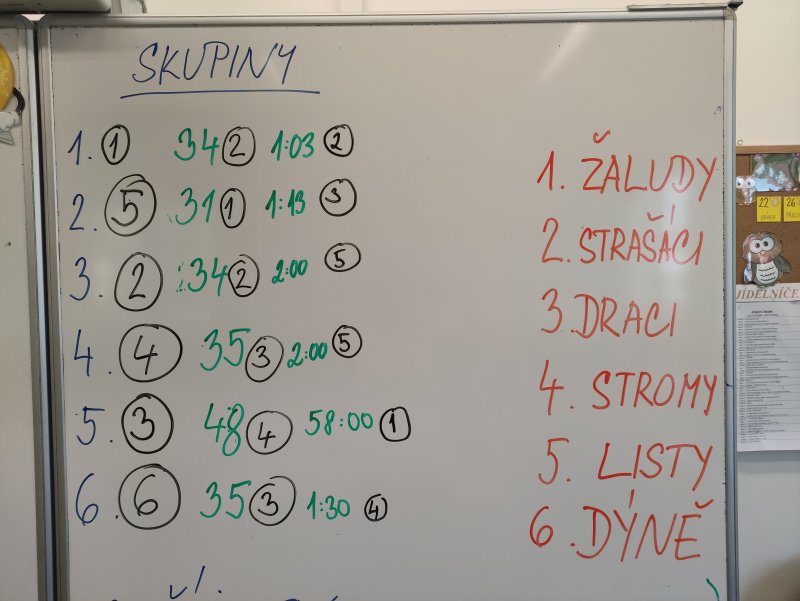 SKUPINY
1. 1 34 2 1:03 2
2. 5 31 1 1:13 3
3. 2 34 2 2:00 5
4. 4 35 3 2:00 5
5. 3 48 4 58:00 1
6. 6 35 3 1:30 4
1. ŽALUDY
2. STRAŠÁCI
3. DRACI
4. STROMY
5. LISTY
6. DÝNĚ
22 26
JÍDELNÍČE